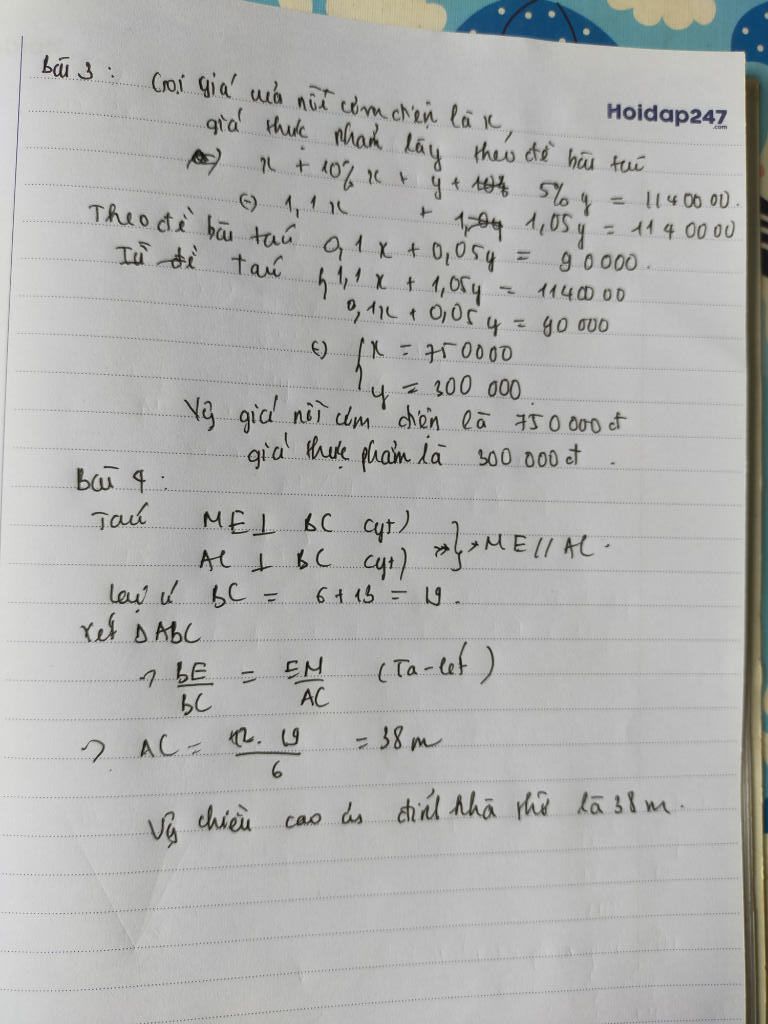 Bài 3: Gọi giá của nồi cơm điện là x,
Hoidap247
.com
giá thực phẩm là y theo đề bài ta có
x + 10% x + y + 5% y = 1140000.
(=) 1,1x + 1,05y = 1140000
Theo đề bài ta có 0,1x + 0,05y = 90000.
Từ đề ta có { 1,1x + 1,05y = 1140000
0,1x + 0,05y = 90000
(=) { x = 750000
y = 300 000
Vậy giá nồi cơm điện là 750000đ
giá thực phẩm là 300 000đ.
Bài 4:
Ta có ME ⊥ BC (gt)
AC ⊥ BC (gt) } → ME // AC.
Lại có BC = 6 + 13 = 19.
xét ΔABC
→ BE/BC = EM/AC (Ta-lét)
→ AC = 12.19/6 = 38 m
Vậy chiều cao đỉnh nhà thờ là 38 m.